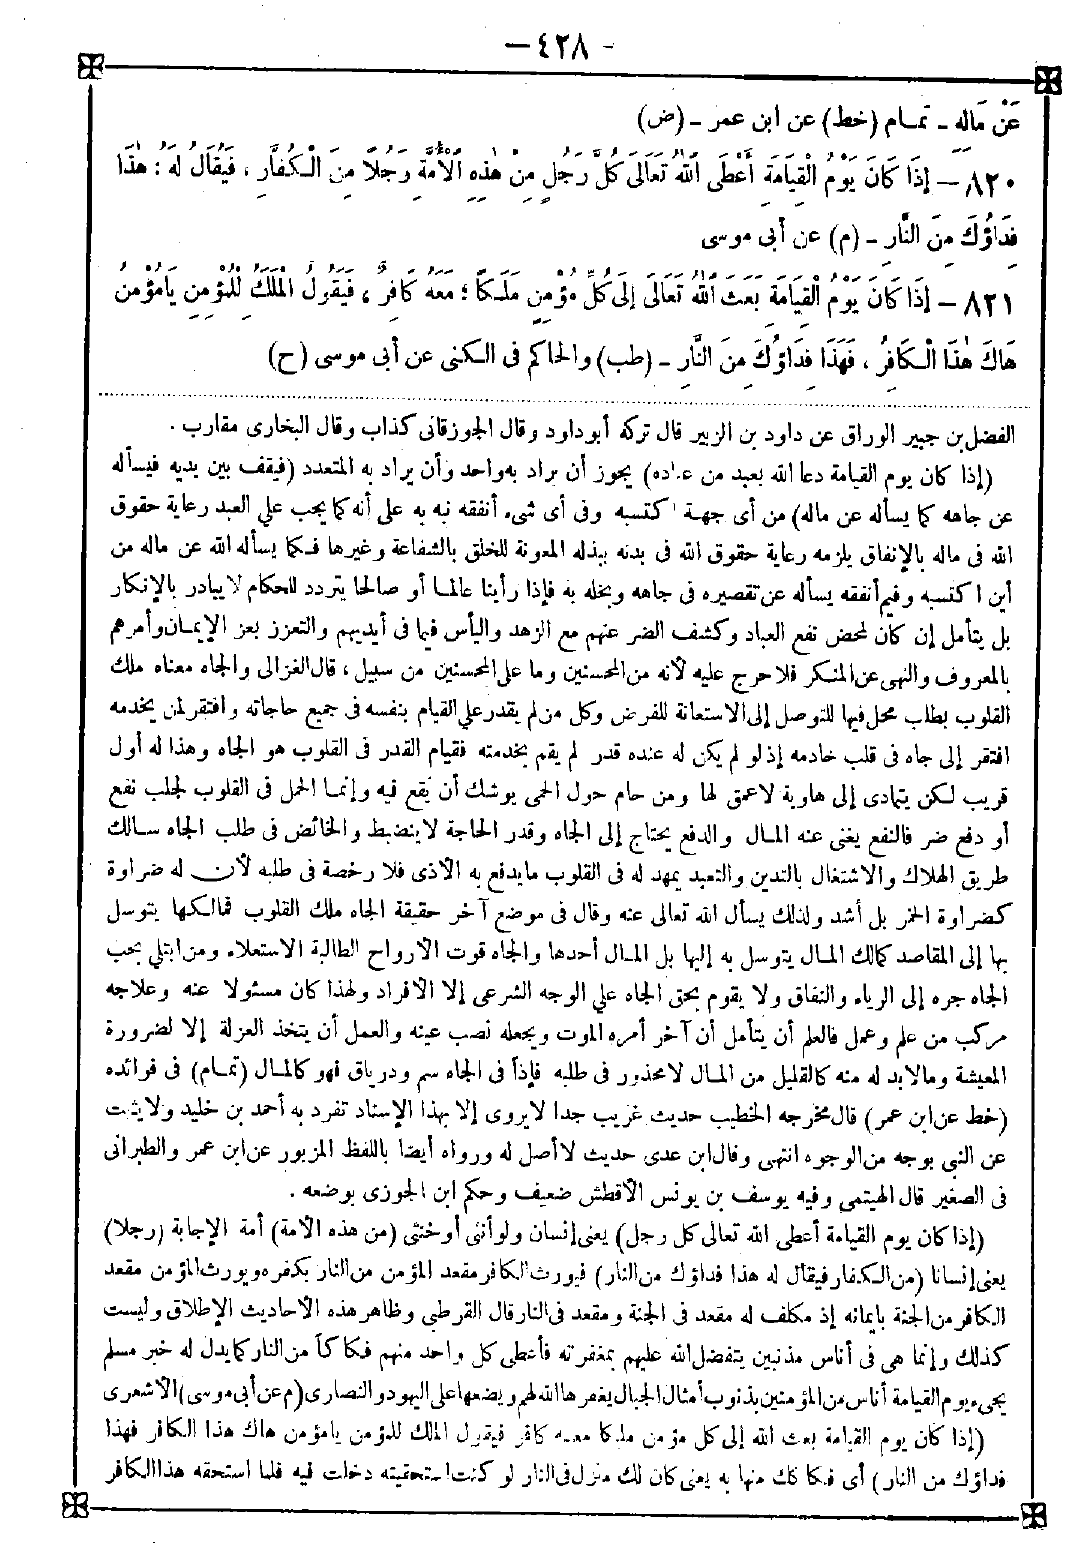 - ٤٢٨ -
عَنْ مَالِهِ - تمـام (خط) عن ابن عمر - (ض)
٨٢٠ - إِذَا كَانَ يَوْمُ الْقِيَامَةِ أَعْطَى اللّٰهُ تَعَالَى كُلَّ رَجُلٍ مِنْ هٰذِهِ الْأُمَّةِ رَجُلًا مِنَ الْكُفَّارِ ، فَيُقَالُ لَهُ : هٰذَا
فِدَاؤُكَ مِنَ النَّارِ - (م) عن أبى موسى
٨٢١ - إِذَا كَانَ يَوْمُ الْقِيَامَةِ بَعَثَ اللّٰهُ تَعَالَى إِلَى كُلِّ مُؤْمِنٍ مَلَكًا ؛ مَعَهُ كَافِرٌ ، فَيَقُولُ الْمَلَكُ لِلْمُؤْمِنِ يَامُؤْمِنُ
هَاكَ هٰذَا الْكَافِرُ ، فَهٰذَا فِدَاؤُكَ مِنَ النَّارِ - (طب) والحاكم فى الكنى عن أبى موسى (ح)
الفضل بن جبير الوراق عن داود بن الزبير قال تركه أبو داود وقال الجوزقانى كذاب وقال البخارى مقارب .
(إذا كان يوم القيامة دعا الله بعبد من عباده) يجوز أن يراد به واحد وأن يراد به المتعدد (فيقف بين يديه فيسأله
عن جاهه كما يسأله عن ماله) من أى جهة اكتسبه وفى أى شىء أنفقه نبه به على أنه كما يجب على العبد رعاية حقوق
الله فى ماله بالإنفاق يلزمه رعاية حقوق الله فى بدنه ببذله المعونة للخلق بالشفاعة وغيرها فكما يسأله الله عن ماله من
أين اكتسبه وفيم أنفقه يسأله عن تقصيره فى جاهه وبخله به فإذا رأينا عالما أو صالحا يتردد للحكام لا يبادر بالإنكار
بل يتأمل إن كان لمحض نفع العباد وكشف الضر عنهم مع الزهد واليأس فيما فى أيديهم والتعزز بعز الإيمان وأمرهم
بالمعروف والنهى عن المنكر فلا حرج عليه لأنه من المحسنين وما على المحسنين من سبيل ، قال الغزالى والجاه معناه ملك
القلوب بطلب محل فيها للتوصل إلى الاستعانة للفرض وكل من لم يقدر على القيام بنفسه فى جميع حاجاته وافتقر لمن يخدمه
افتقر إلى جاه فى قلب خادمه إذ لو لم يكن له عنده قدر لم يقم بخدمته فقيام القدر فى القلوب هو الجاه وهذا له أول
قريب لكن يتمادى إلى هاوية لاعمق لها ومن حام حول الحمى يوشك أن يقع فيه وإنما الحمل فى القلوب لجلب نفع
أو دفع ضر فالنفع يغنى عنه المال والدفع يحتاج إلى الجاه وقدر الحاجة لا ينضبط والخائض فى طلب الجاه سالك
طريق الهلاك والاشتغال بالتدين والتعبد يمهد له فى القلوب مايدفع به الأذى فلا رخصة فى طلبه لأن له ضراوة
كضراوة الخمر بل أشد ولذلك يسأل الله تعالى عنه وقال فى موضع آخر حقيقة الجاه ملك القلوب فمالكها يتوسل
بها إلى المقاصد كمالك المال يتوسل به إليها بل المال أحدها والجاه قوت الأرواح الطالبة الاستعلاء ومن ابتلى بحب
الجاه جره إلى الرياء والنفاق ولا يقوم بحق الجاه على الوجه الشرعى إلا الأفراد ولهذا كان مسئولا عنه وعلاجه
مركب من علم وعمل فالعلم أن يتأمل أن آخر أمره الموت ويجعله نصب عينه والعمل أن يتخذ العزلة إلا لضرورة
المعيشة ومالابد له منه كالقليل من المال لامحذور فى طلبه فإذاً فى الجاه سم ودرياق فهو كالمال (تمـام) فى فوائده
(خط عن ابن عمر) قال مخرجه الخطيب حديث غريب جدا لايروى إلا بهذا الإسناد تفرد به أحمد بن خليد ولا يثبت
عن النبى بوجه من الوجوه انتهى وقال ابن عدى حديث لا أصل له ورواه أيضا باللفظ المزبور عن ابن عمر والطبرانى
فى الصغير قال الهيتمى وفيه يوسف بن يونس الأفطس ضعيف وحكم ابن الجوزى بوضعه .
(إذا كان يوم القيامة أعطى الله تعالى كل رجل) يعنى إنسان ولو أنثى أو خنثى (من هذه الأمة) أمة الإجابة (رجلا)
يعنى إنسانا (من الكفار فيقال له هذا فداؤك من النار) فيورث الكافر مقعد المؤمن من النار بكفره ويورث المؤمن مقعد
الكافر من الجنة بإيمانه إذ مكلف له مقعد فى الجنة ومقعد فى النار قال القرطبى وظاهر هذه الأحاديث الإطلاق وليست
كذلك وإنما هى فى أناس مذنبين يتفضل الله عليهم بمغفرته فأعطى كل واحد منهم فكاكاً من النار كما يدل له خبر مسلم
يجىء يوم القيامة أناس من المؤمنين بذنوب أمثال الجبال يغفرها الله لهم ويضعها على اليهود والنصارى (م عن أبى موسى) الأشعرى
(إذا كان يوم القيامة بعث الله إلى كل مؤمن ملكا معه كافر فيقول الملك للمؤمن يامؤمن هاك هذا الكافر فهذا
فداؤك من النار) أى فكاكك منها به يعنى كان لك منزل فى النار لو كنت استحقيته دخلت فيه فلما استحقه هذا الكافر